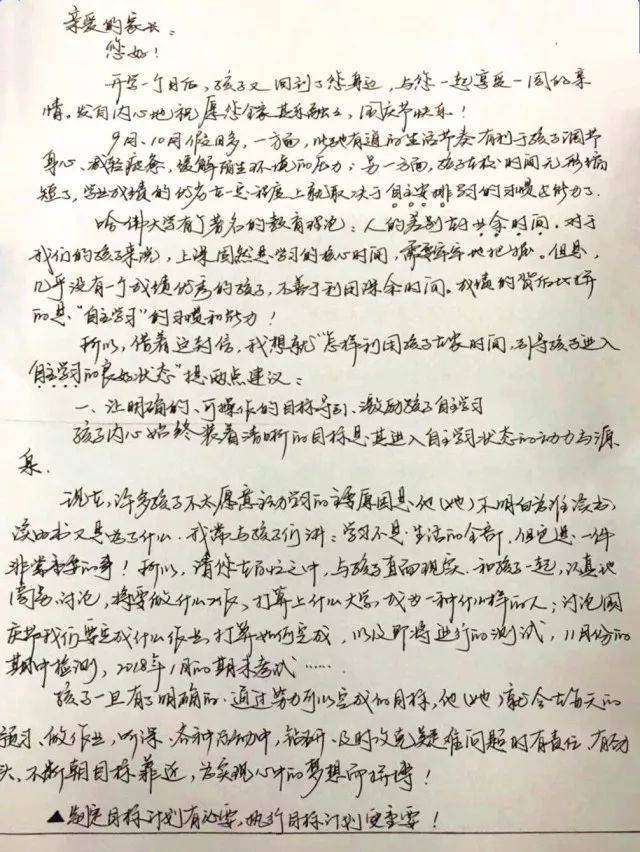 亲爱的家长：
您好！
开学一个月后，孩子又回到了您身边，与您一起享受一周的亲
情。发自内心地祝愿您全家其乐融融，国庆节快乐！
9月、10月假日多，一方面，此地有道的生活节奏有利于孩子调节
身心、减轻疲惫、缓解陌生环境的压力；另一方面，孩子在校时间无形缩
短了，学业成绩的优劣在一定程度上就取决于自主安排学习的习惯与能力了。
哈佛大学有个著名的教育理论：人的差别在于业余时间。对于
我们的孩子来说，上课固然是学习的核心时间，需要牢牢地把握。但是，
几乎没有一个成绩优秀的孩子，不善于利用课余时间。成绩的背后比拼
的是"自主学习"的习惯和能力！
所以，借着这封信，我想就"怎样利用孩子在家时间，引导孩子进入
自主学习的良好状态"提两点建议：
一、让明确的、可操作的目标导引、激励孩子自主学习
孩子内心始终装着清晰的目标是其进入自主学习状态的动力与源
泉。
现在，许多孩子不太愿意主动学习的主要原因是他（她）不明白为谁读书，
读书又是为了什么。我常与孩子们讲：学习不是生活的全部，但它是一件
非常重要的事！所以，请您在百忙之中，与孩子直面现实，和孩子一起，认真地
讨论，将要做什么工作，打算上什么大学，成为一种什么样的人；讨论国
庆节我们要完成什么作业，打算如何完成，以及即将进行的测试，11月份的
期中检测，2018年1月的期末考试……
孩子一旦有了明确的、通过努力可以完成的目标，他（她）就会在每天的
预习、做作业，听课、各种活动中，钻研、及时攻克疑难问题时有责任、有劲
头，不断朝目标靠近，为实现心中的梦想而拼搏！
▲制定目标计划有必要，执行目标计划更重要！